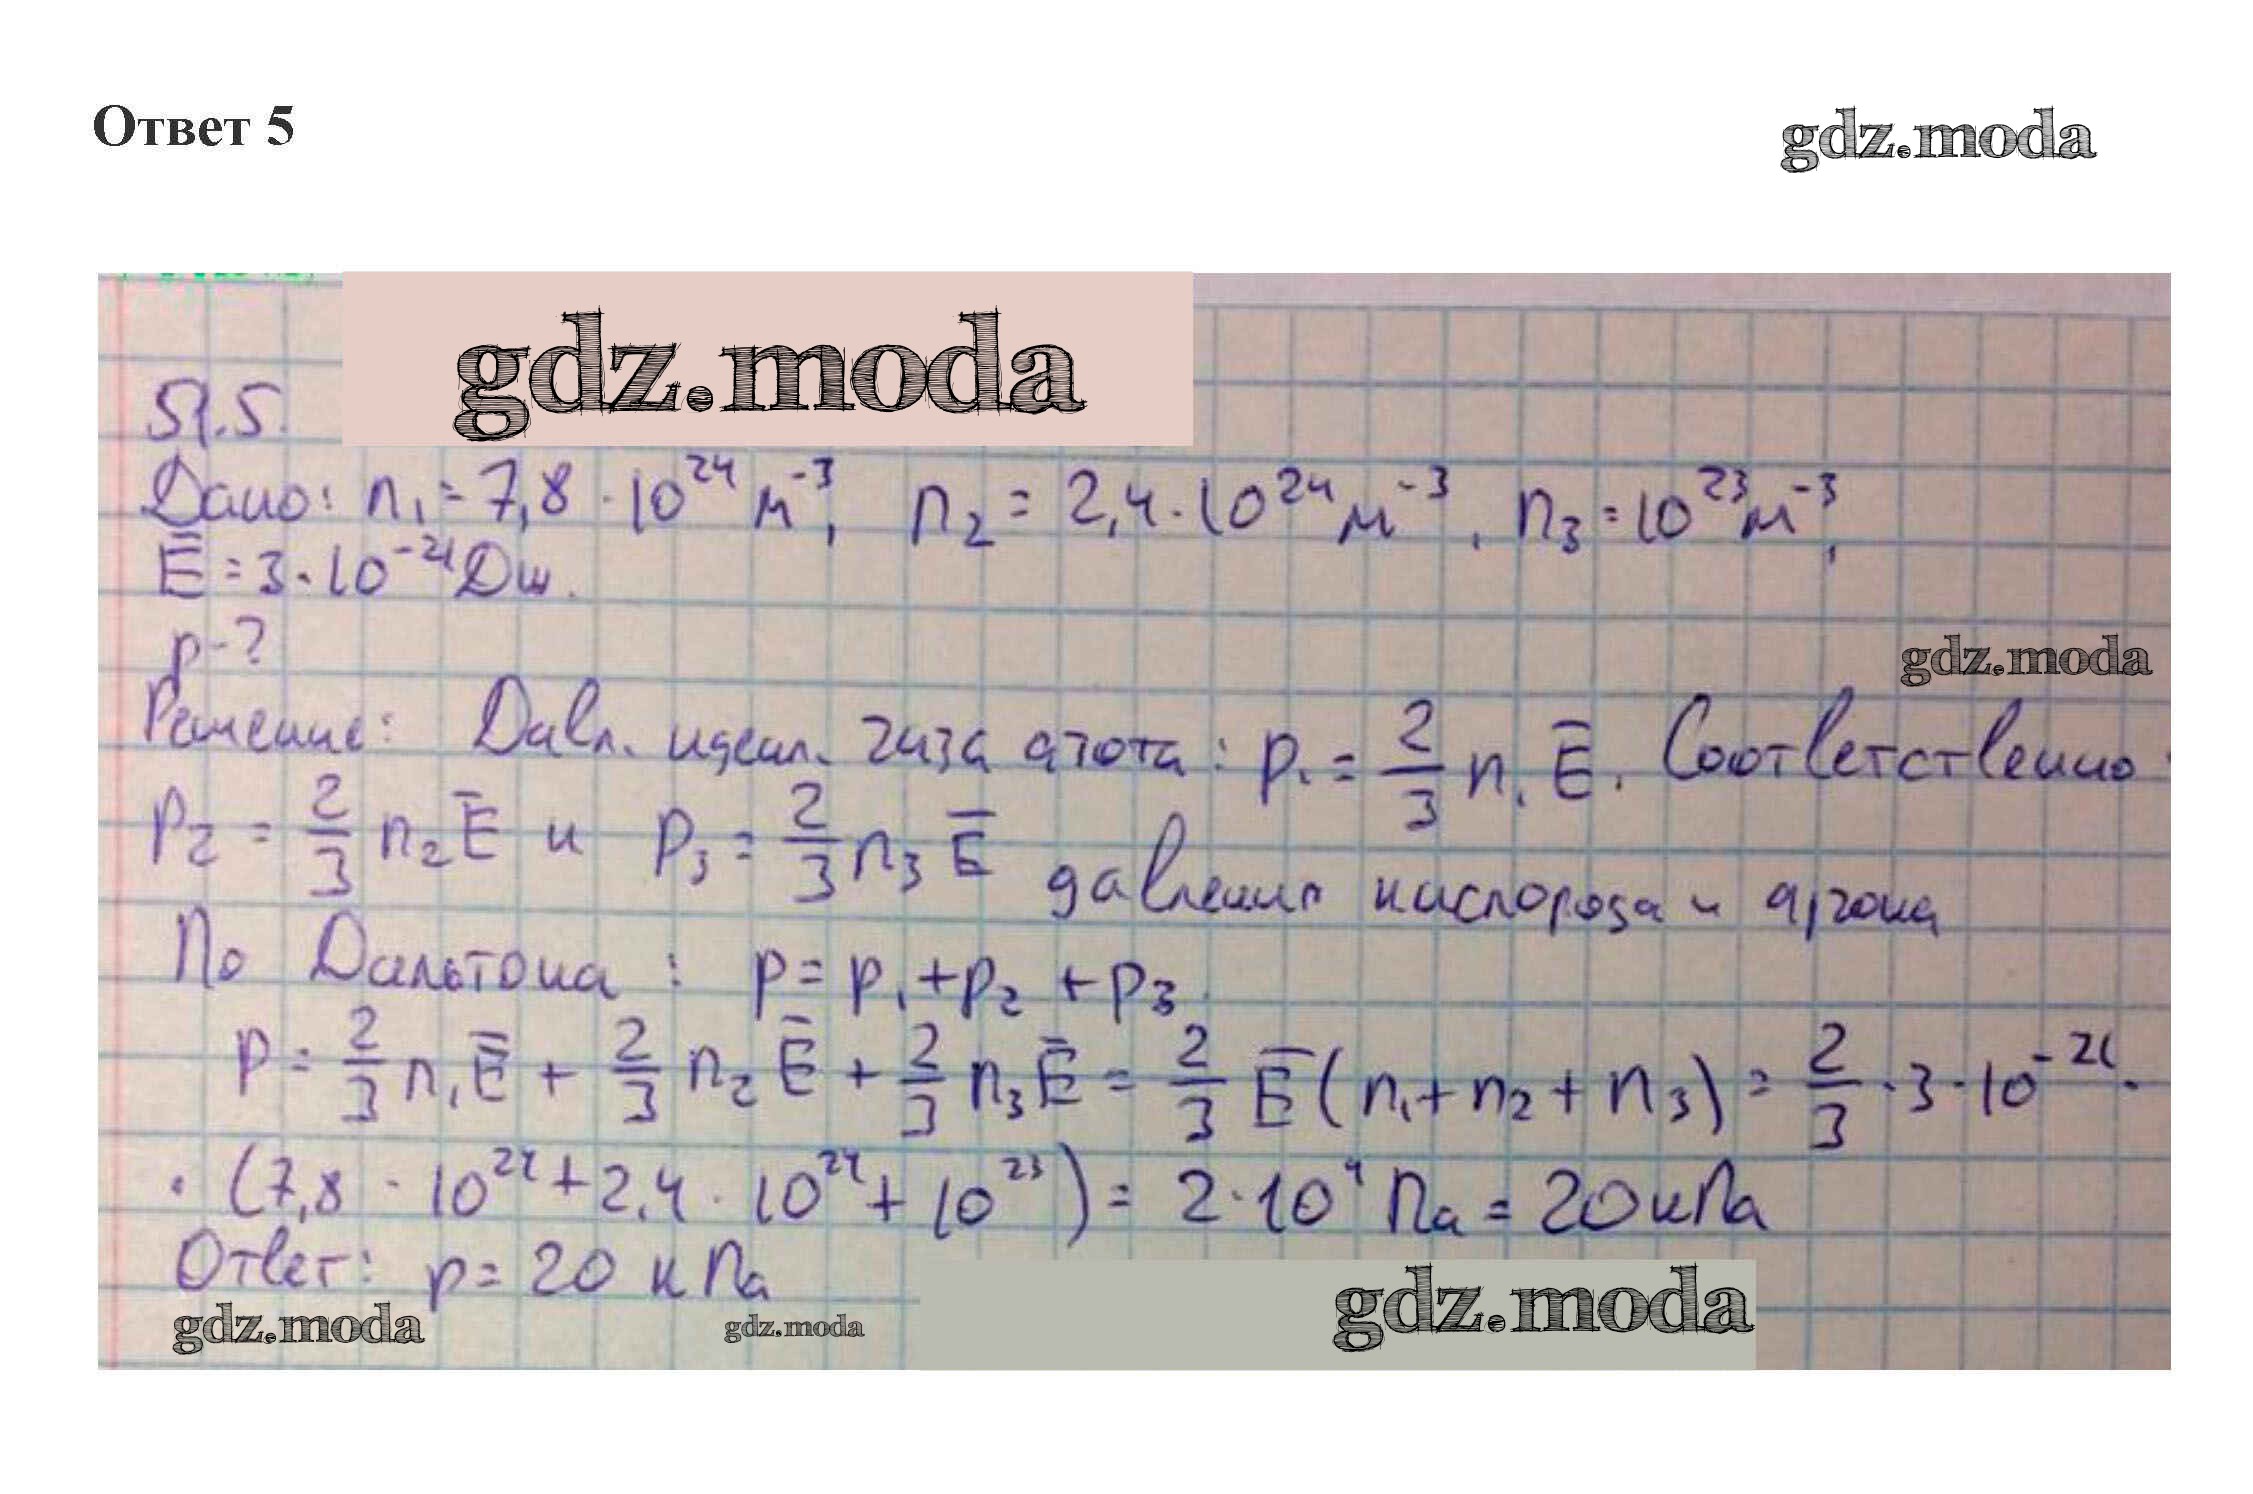 Ответ 5
gdz.moda
gdz.moda
§1.5.
Дано: n₁ = 7,8 · 10²⁴ м⁻³, n₂ = 2,4 · 10²⁴ м⁻³, n₃ = 10²³ м⁻³,
E̅ = 3 · 10⁻²¹ Дж.
p - ?
gdz.moda
Решение: Давл. идеал. газа азота: p₁ = 2/3 n₁ E̅. Соответственно
p₂ = 2/3 n₂ E̅ и p₃ = 2/3 n₃ E̅ давления кислорода и аргона
По Дальтона: p = p₁ + p₂ + p₃.
p = 2/3 n₁ E̅ + 2/3 n₂ E̅ + 2/3 n₃ E̅ = 2/3 E̅ (n₁ + n₂ + n₃) = 2/3 · 3 · 10⁻²¹ ·
· (7,8 · 10²⁴ + 2,4 · 10²⁴ + 10²³) = 2 · 10⁴ Па = 20 кПа
Ответ: p = 20 кПа
gdz.moda
gdz.moda
gdz.moda